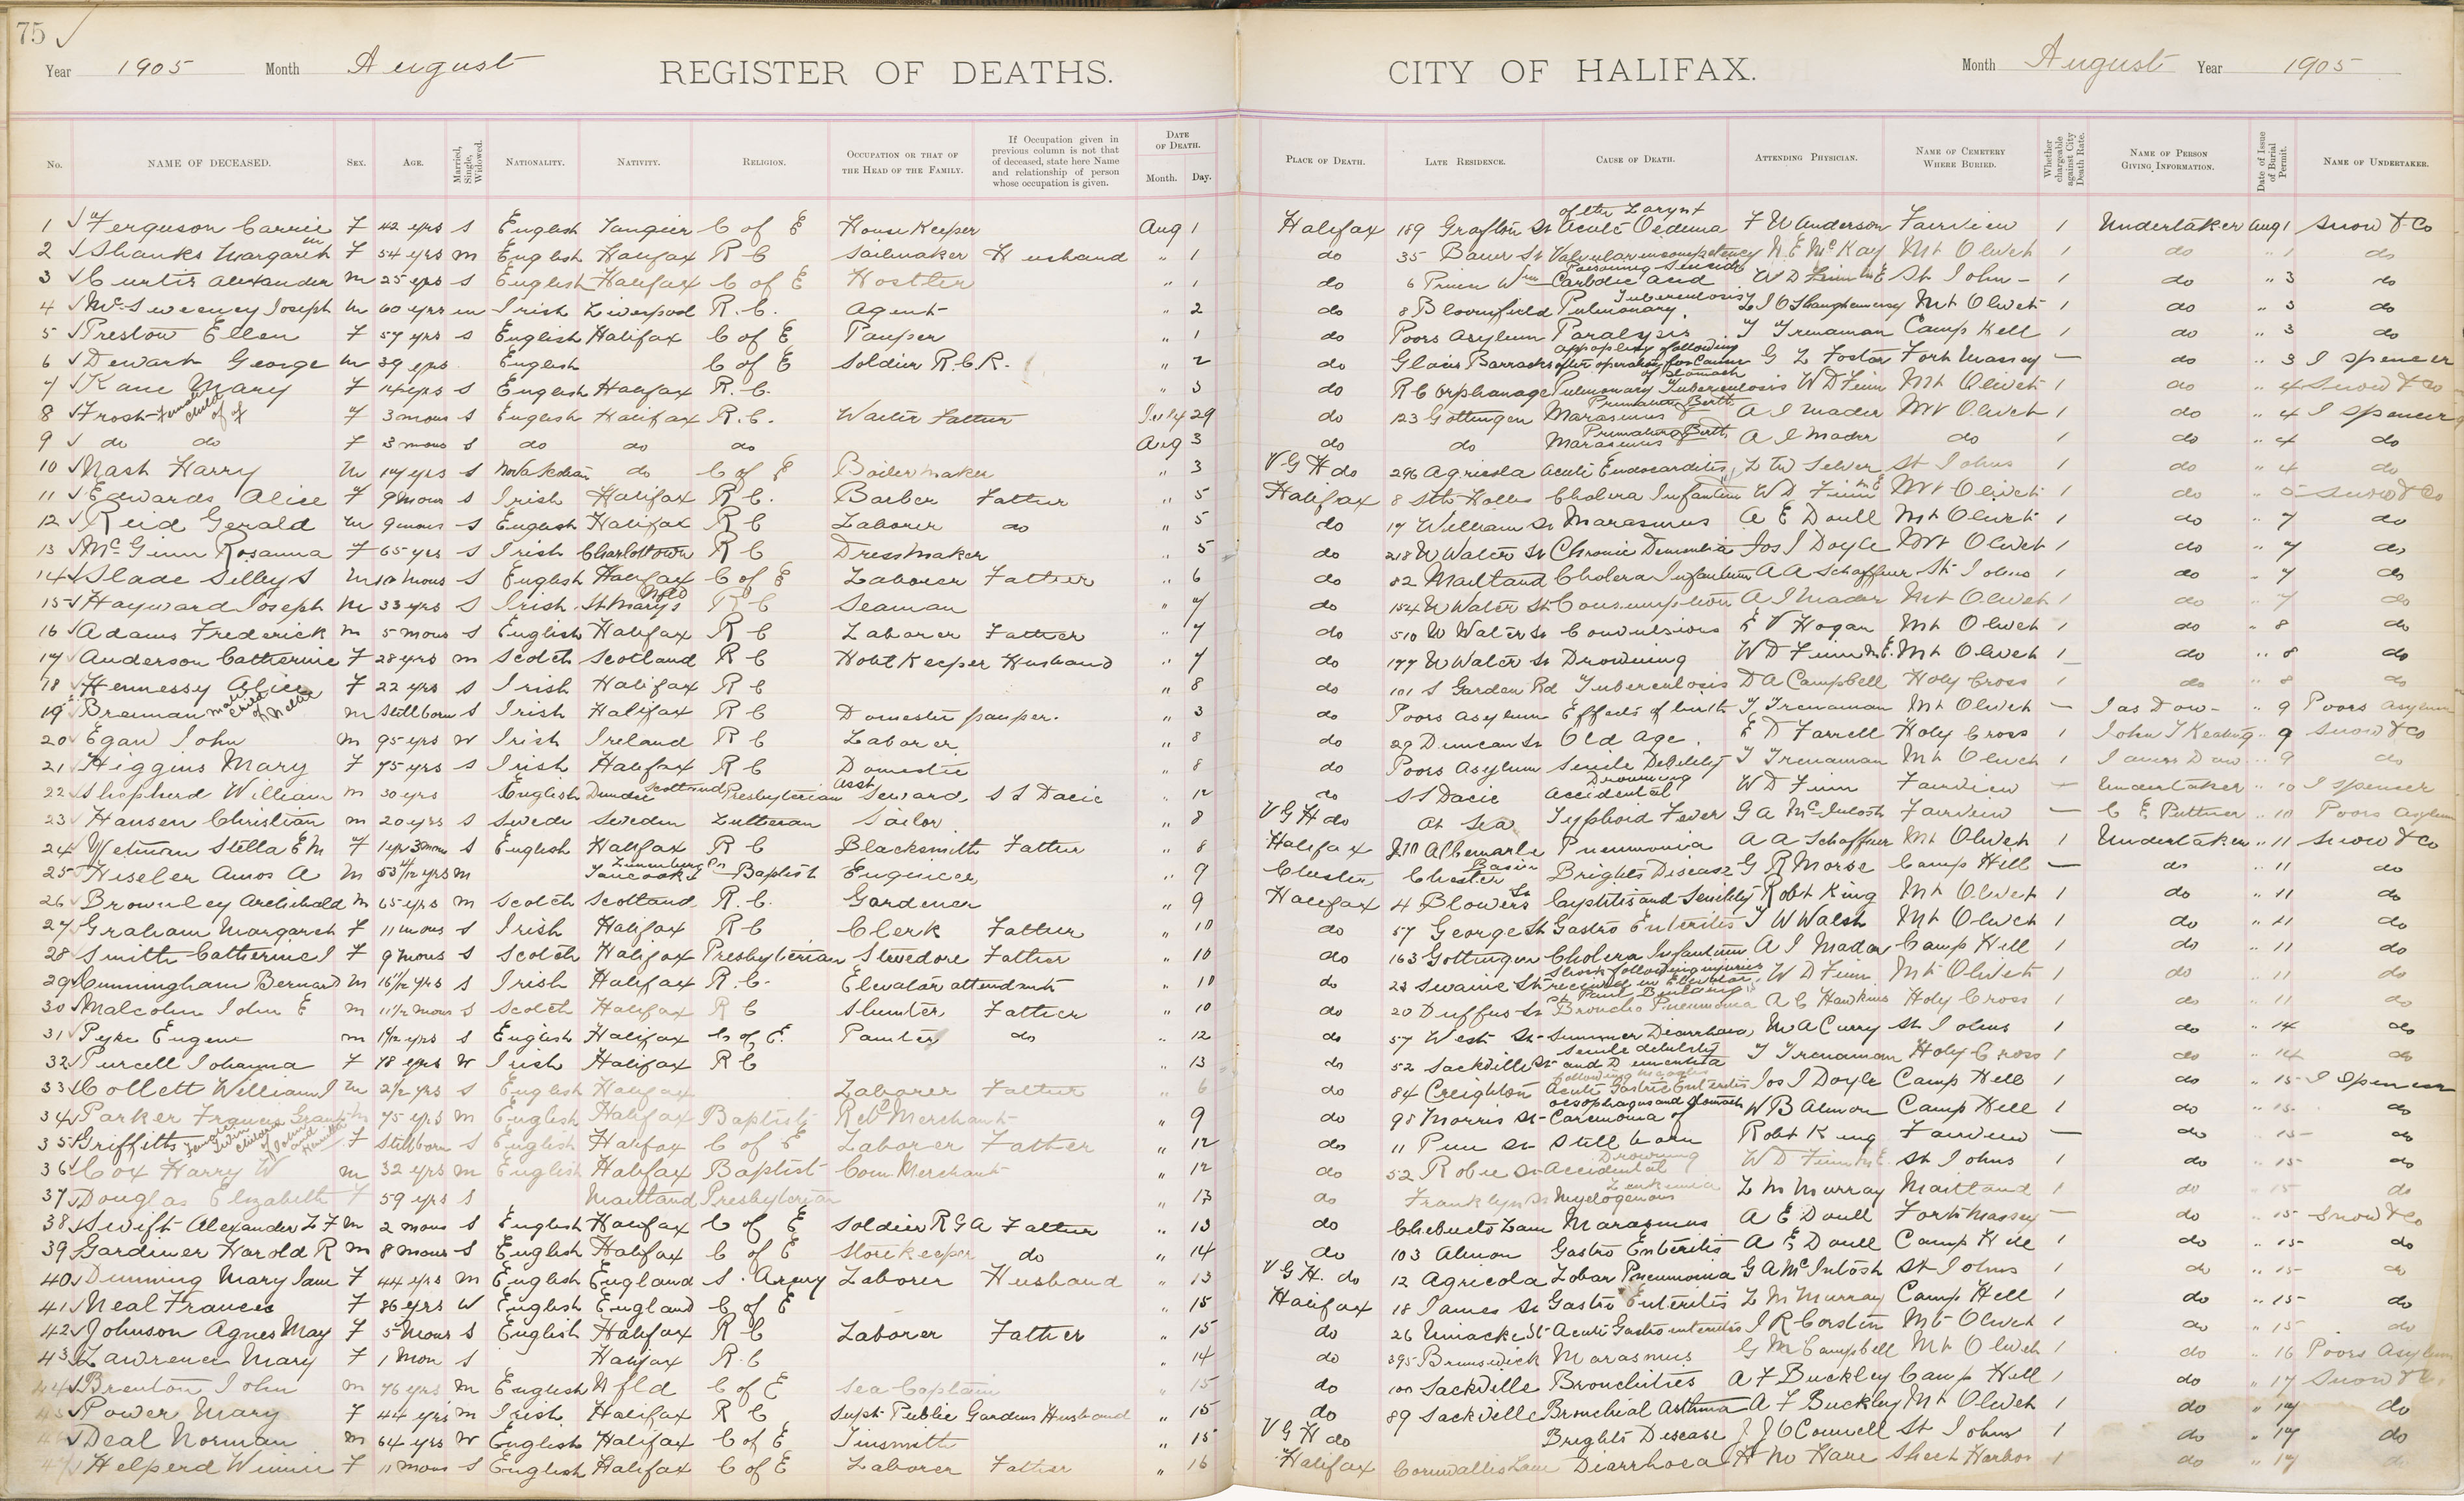 75
Year 1905 Month August REGISTER OF DEATHS. CITY OF HALIFAX. Month August Year 1905
No. NAME OF DECEASED. SEX. AGE. Married, Single, Widowed. NATIONALITY. NATIVITY. RELIGION. OCCUPATION OR THAT OF THE HEAD OF THE FAMILY. If Occupation given in previous column is not that of deceased, state here Name and relationship of person whose occupation is given. DATE OF DEATH. Month. Day. PLACE OF DEATH. LATE RESIDENCE. CAUSE OF DEATH. ATTENDING PHYSICIAN. NAME OF CEMETERY WHERE BURIED. Whether chargeable against City Death Rate. NAME OF PERSON GIVING INFORMATION. Date of Issue of Burial Permit. NAME OF UNDERTAKER.
1 Ferguson Carrie F 42 yrs S English Tangier C of E House Keeper Aug 1 Halifax 189 Grafton St Acute Oedema of the Larynx F W Anderson Fairview 1 Undertaker Aug 1 Snow & Co
2 Shanks Margaret F 54 yrs M English Halifax R C Sailmaker Husband " 1 do 35 Bauer St Valvular incompetency N E McKay Mt Olivet 1 do " 1 do
3 Curtis Alexander M 25 yrs S English Halifax C of E Hostler " 1 do 6 Prince Wm Carbolic acid Poisoning Suicide W D Finn M E St John 1 do " 3 do
4 McSweeney Joseph M 60 yrs M Irish Liverpool R. C. Agent " 2 do 8 Bloomfield Pulmonary Tuberculosis O'Shaughnessy Mt Olivet 1 do " 3 do
5 Prestow Ellen F 57 yrs S English Halifax C of E Pauper " 1 do Poors Asylum Paralysis T Trenaman Camp Hill 1 do " 3 do
6 Dewart George M 39 yrs English C of E Soldier R.C.R. " 2 do Glacis Barracks appoplexy following after operation for Cancer of Stomach G L Foster Fort Massey — do " 3 I Spencer
7 Kane Mary F 14 yrs S English Halifax R. C. " 3 do R C Orphanage Pulmonary Tuberculosis W D Finn Mt Olivet 1 do " 4 Snow & Co
8 Frost female child of F 3 mons S English Halifax R. C. Waiter Father July 29 do 123 Gottingen Marasmus & Premature Birth A I Mader Mt Olivet 1 do " 4 I Spencer
9 do do F 3 mons S do do do Aug 3 do do Marasmus Premature Birth A I Mader do 1 do " 4 do
10 Nash Harry M 14 yrs S Nova Scotian do C of E Boilermaker " 3 V G H do 296 Agricola Acute Endocarditis St Johns 1 do " 4 do
11 Edwards Alice F 9 mons S Irish Halifax R C. Barber Father " 5 Halifax 8 Sth Hollis Cholera Infantum W D Finn M E Mt Olivet 1 do " 5 Snow & Co
12 Reid Gerald M 9 mons S English Halifax R C Laborer do " 5 do 17 William St Marasmus A E Doull Mt Olivet 1 do " 7 do
13 McGinn Rosanna F 65 yrs S Irish Charlottown R C Dressmaker " 5 do 218 U Water St Chronic Dementia Jos I Doyle Mt Olivet 1 do " 7 do
14 Slade Silley S M 10 mons S English Halifax C of E Laborer Father " 6 do 82 Maitland Cholera Infantum A A Schaffner St Johns 1 do " 7 do
15 Hayward Joseph M 33 yrs S Irish St Marys Nfld R C Seaman " 7 do 154 U Water St Consumption A I Mader Mt Olivet 1 do " 7 do
16 Adams Frederick M 5 mons S English Halifax R C Laborer Father " 7 do 510 U Water St Convulsions E V Hogan Mt Olivet 1 do " 8 do
17 Anderson Catherine F 28 yrs M Scotch Scotland R C Hotel Keeper Husband " 7 do 177 U Water St Drowning W D Finn M E. Mt Olivet 1 do " 8 do
18 Hennessy Alice F 22 yrs S Irish Halifax R C " 8 do 101 S Garden Rd Tuberculosis D A Campbell Holy Cross 1 do " 8 do
19 Brennan male child of Nellie M Stillborn S Irish Halifax R C Domestic pauper. " 3 do Poors Asylum Effects of birth T Trenaman Mt Olivet — Jas Dow " 9 Poors Asylum
20 Egan John M 95 yrs W Irish Ireland R C Laborer " 8 do 29 Duncan St Old Age E D Farrell Holy Cross 1 John T Keating " 9 Snow & Co
21 Higgins Mary F 75 yrs S Irish Halifax R C Domestic " 8 do Poors Asylum Senile Debility T Trenaman Mt Olivet 1 James Dow " 9 do
22 Shepherd William M 30 yrs English Dundee Scotland Presbyterian Asst Steward, S S Dacie " 12 do S S Dacie Accidental Drowning W D Finn Fairview — Undertaker " 10 I Spencer
23 Hansen Christian M 20 yrs S Swede Sweden Lutheran Sailor " 8 V G H do At Sea Typhoid Fever G A McIntosh Fairview — C E Puttner " 10 Poors Asylum
24 Wetman Stella E M F 1 yr 3 mons S English Halifax R C Blacksmith Father " 8 Halifax 210 Albemarle Pneumonia A A Schaffner Mt Olivet 1 Undertaker " 11 Snow & Co
25 Hiseler Amos A M yrs M Tancook I Lunenburg Co Baptist Engineer " 9 Chester Chester Basin Brights Disease G R Morse Camp Hill — do " 11 do
26 Brownley Archibald M 65 yrs M Scotch Scotland R. C. Gardener " 9 Halifax 4 Blowers St Cystitis and Senility Robt King Mt Olivet 1 do " 11 do
27 Graham Margaret F 11 mons S Irish Halifax R C Clerk Father " 10 do 57 George St Gastro Enteritis T W Walsh Mt Olivet 1 do " 11 do
28 Smith Catherine I F 9 mons S Scotch Halifax Presbyterian Stevedore Father " 10 do 163 Gottingen Cholera Infantum A I Mader Camp Hill 1 do " 11 do
29 Cunningham Bernard M 16 11/12 yrs S Irish Halifax R. C. Elevator attendant " 10 do 23 Swaine St Shock following injuries received in Elevator St Paul Building W D Finn Mt Olivet 1 do " 11 do
30 Malcolm John E M 11 1/2 mons S Scotch Halifax R C Plumber Father " 10 do 20 Duffus St Broncho Pneumonia A C Hawkins Holy Cross 1 do " 11 do
31 Pyke Eugene M yrs S English Halifax C of E. Painter do " 12 do 57 West St Summer Diarrhoea M A Curry St Johns 1 do " 14 do
32 Purcell Johanna F 78 yrs W Irish Halifax R C " 13 do 52 Sackville St Senile debility and Dementia T Trenaman Holy Cross 1 do " 14 do
33 Collett William J M 2 1/2 yrs S English Halifax Laborer Father " 6 do 84 Creighton Acute Gastric Enteritis following measles Jos I Doyle Camp Hill 1 do " 15 I Spencer
34 Parker Francis Grant M 75 yrs M English Halifax Baptist Retd Merchant " 9 do 98 Morris St Carcinoma of oesophagus and stomach W B Almon Camp Hill 1 do " 15 do
35 Griffiths F Stillborn S English Halifax C of E Laborer Father " 12 do 11 St Still born Robt King Fairview — do " 15 do
36 Cox Harry W M 32 yrs M English Halifax Baptist Com Merchant " 12 do 52 Robie St Accidental Drowning W D Finn M E St Johns 1 do " 15 do
37 Douglas Elizabeth F 59 yrs S Maitland Presbyterian " 13 do Franklyn St Myelogenous Leukemia L M Murray Maitland 1 do " 15 do
38 Swift Alexander L F M 2 mons S English Halifax C of E Soldier R G A Father " 13 do Chebucto Lane Marasmus A E Doull Fort Massey — do " 15 Snow & Co
39 Gardiner Harold R M 8 mons S English Halifax C of E Storekeeper do " 14 do 103 Almon Gastro Enteritis A E Doull Camp Hill 1 do " 15 do
40 Dunning Mary Jane F 44 yrs M English England S. Army Laborer Husband " 13 V G H. do 12 Agricola Lobar Pneumonia G A McIntosh St Johns 1 do " 15 do
41 Neal Frances F 86 yrs W English England C of E " 15 Halifax 18 James St Gastro Enteritis L M Murray Camp Hill 1 do " 15 do
42 Johnson Agnes May F 5 mons S English Halifax R C Laborer Father " 15 do 26 Uniacke St Acute Gastro enteritis I R Corston Mt Olivet 1 do " 15 do
43 Lawrence Mary F 1 mon S Halifax R. C " 14 do 395 Brunswick Marasmus G M Campbell Mt Olivet 1 do " 16 Poors Asylum
44 Brenton John M 76 yrs M English Nfld C of E Sea Captain " 15 do 100 Sackville Bronchitis A F Buckley Camp Hill 1 do " 17 Snow & Co
45 Power Mary F 44 yrs M Irish Halifax R C Supt Public Gardens Husband " 15 do 89 Sackville Bronchial Asthma A F Buckley Mt Olivet 1 do " 17 do
Deal Norman M 64 yrs W English Halifax C of E Tinsmith " 15 V G H do Brights Disease J J O'Connell St Johns 1 do " 17 do
47 Helperd Winnie F 11 mons S English Halifax C of E Laborer Father " 16 Halifax Cornwallis Lane Diarrhoea Sheet Harbor 1 do " 17 do